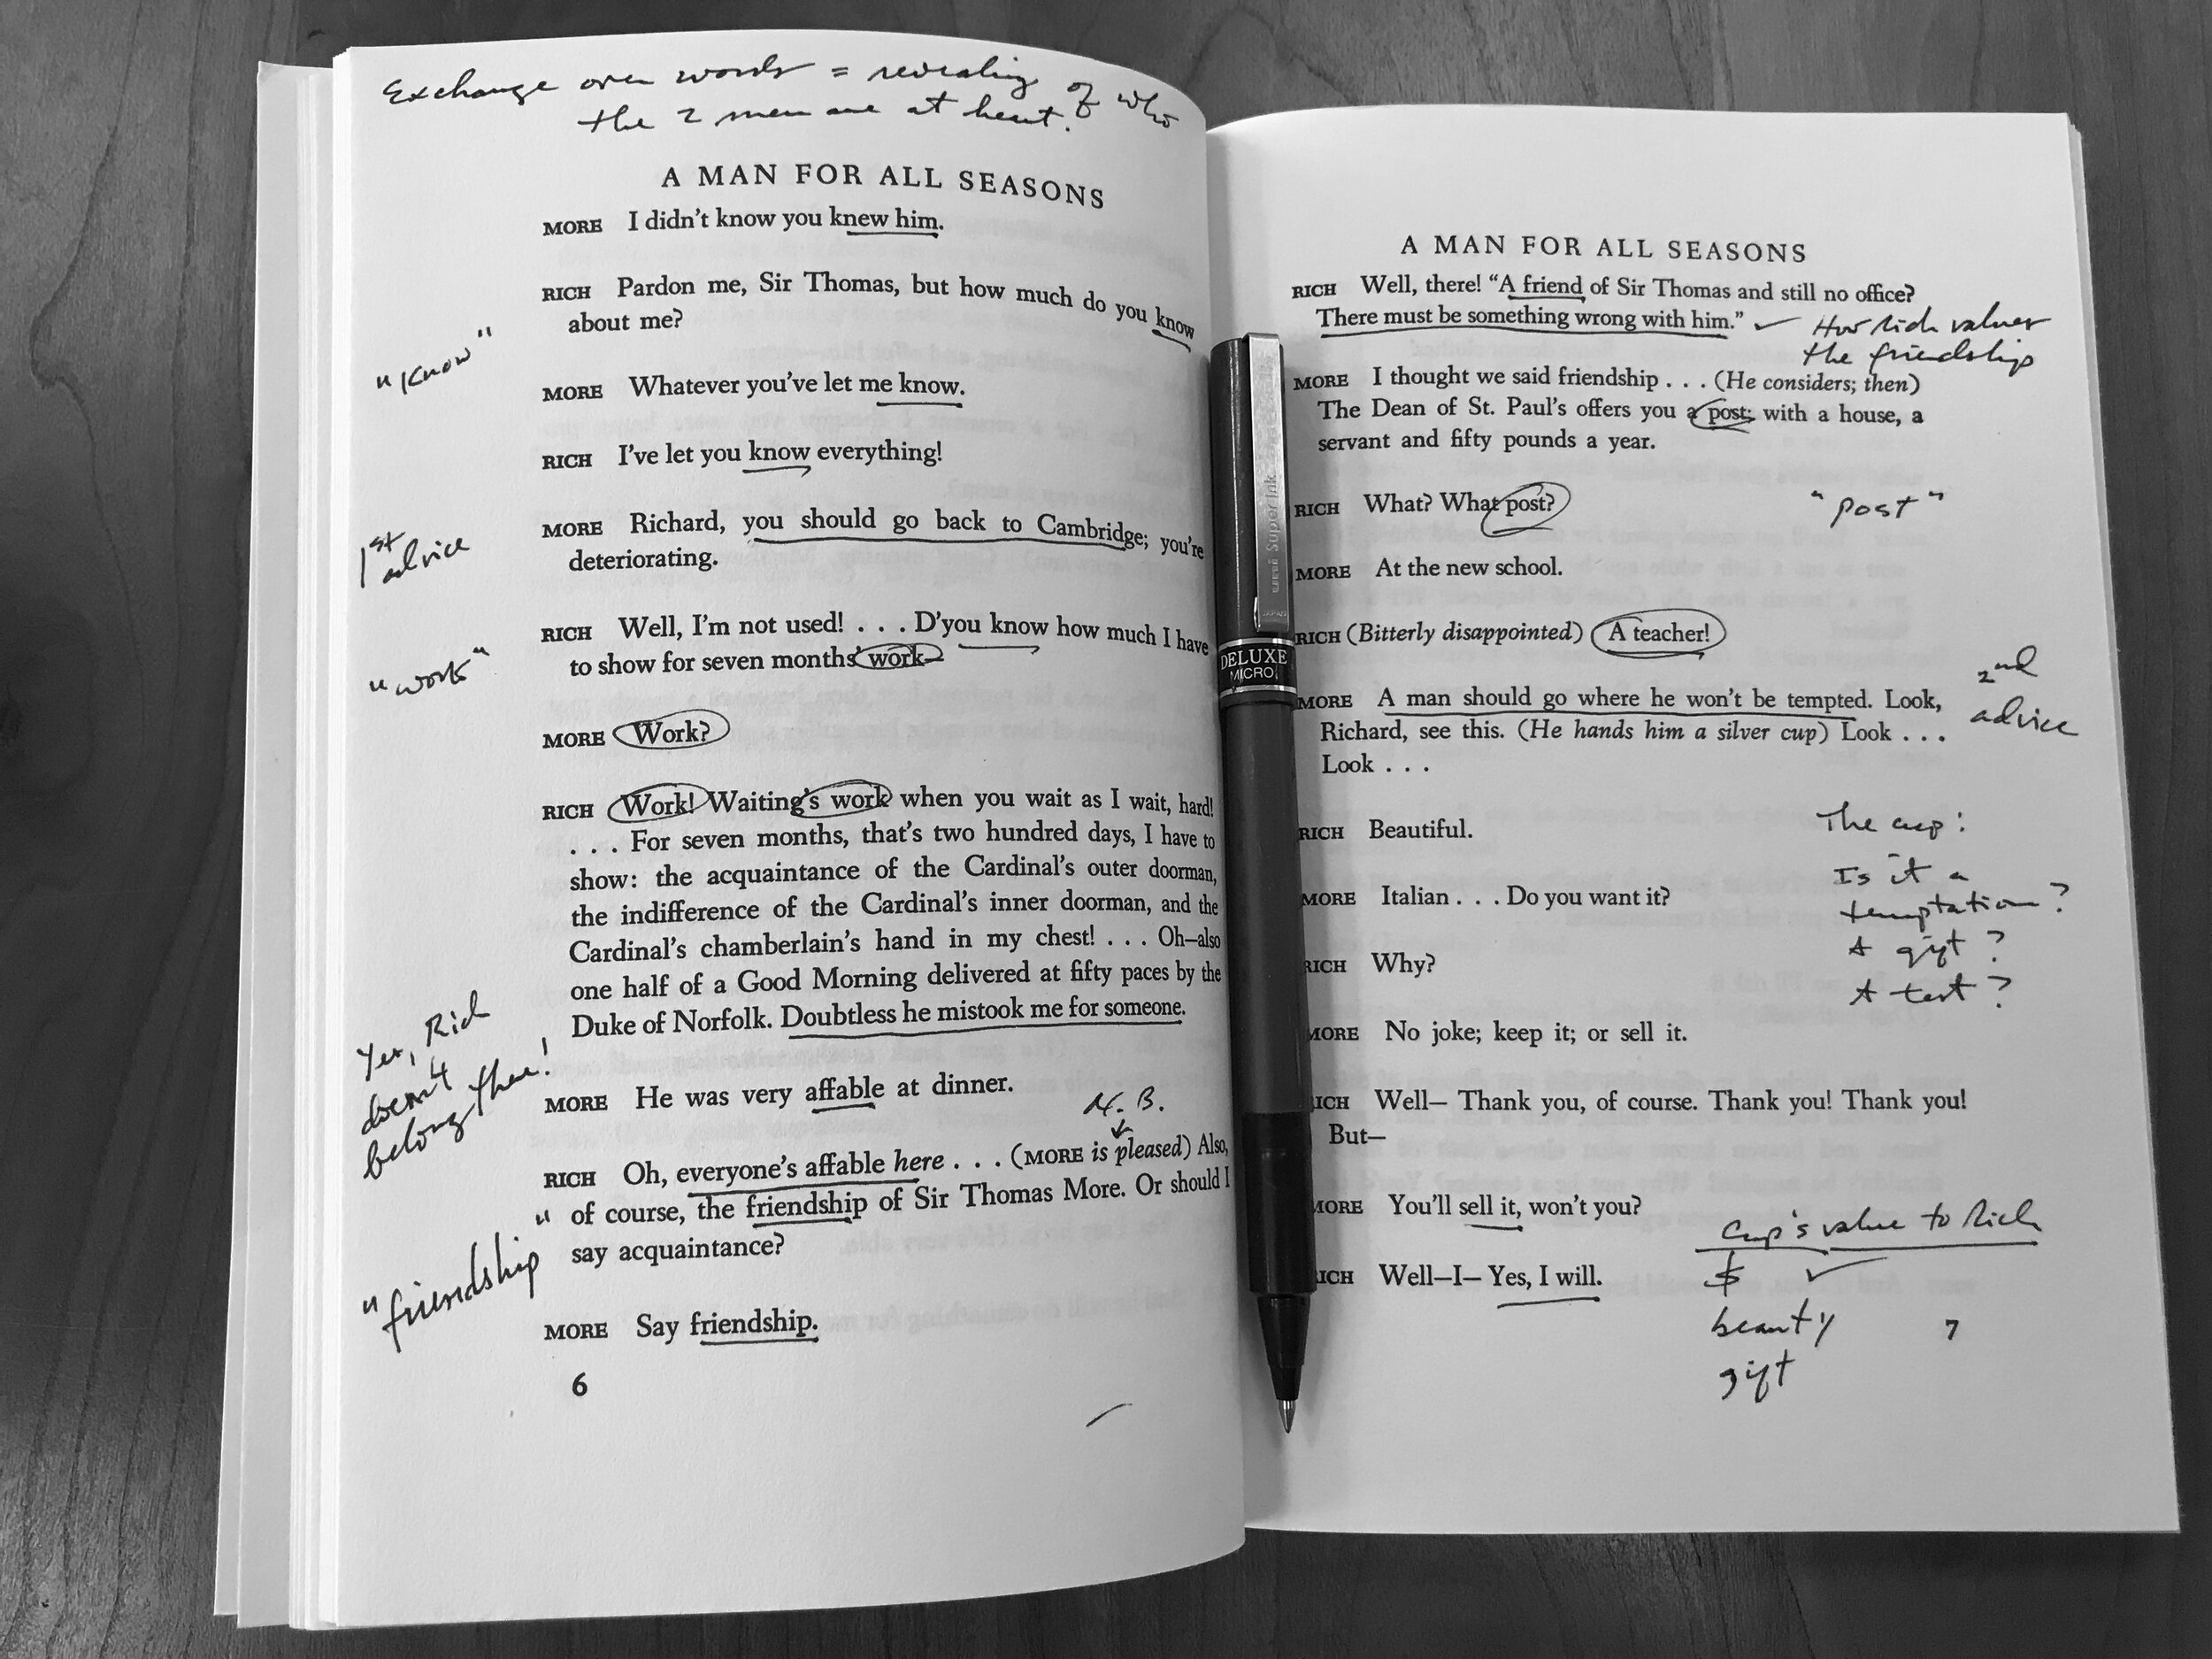 Exchange over words = revealing of who
the 2 men are at heart.
A MAN FOR ALL SEASONS
MORE I didn't know you knew him.
RICH Pardon me, Sir Thomas, but how much do you know
about me?
"Know"
MORE Whatever you've let me know.
RICH I've let you know everything!
1st
advice
MORE Richard, you should go back to Cambridge; you're
deteriorating.
RICH Well, I'm not used! . . . D'you know how much I have
to show for seven months' work—
"work"
MORE Work?
RICH Work! Waiting's work when you wait as I wait, hard!
. . . For seven months, that's two hundred days, I have to
show: the acquaintance of the Cardinal's outer doorman,
the indifference of the Cardinal's inner doorman, and the
Cardinal's chamberlain's hand in my chest! . . . Oh—also
one half of a Good Morning delivered at fifty paces by the
Duke of Norfolk. Doubtless he mistook me for someone.
Yes, Rich
doesn't
belong there!
MORE He was very affable at dinner.
N.B.
RICH Oh, everyone's affable here . . . (MORE is pleased) Also,
of course, the friendship of Sir Thomas More. Or should I
say acquaintance?
"friendship"
MORE Say friendship.
6
uni Super Ink
JAPAN
DELUXE
MICRO
A MAN FOR ALL SEASONS
RICH Well, there! "A friend of Sir Thomas and still no office?
There must be something wrong with him."
How Rich values
the friendship
MORE I thought we said friendship . . . (He considers; then)
The Dean of St. Paul's offers you a post; with a house, a
servant and fifty pounds a year.
RICH What? What post?
"post"
MORE At the new school.
RICH (Bitterly disappointed) A teacher!
2nd
advice
MORE A man should go where he won't be tempted. Look,
Richard, see this. (He hands him a silver cup) Look . . .
Look . . .
RICH Beautiful.
The cup:
Is it a
temptation?
A gift?
A test?
MORE Italian . . . Do you want it?
RICH Why?
MORE No joke; keep it; or sell it.
RICH Well— Thank you, of course. Thank you! Thank you!
But—
MORE You'll sell it, won't you?
RICH Well—I— Yes, I will.
Cup's value to Rich
$ ✓
beauty
gift
7